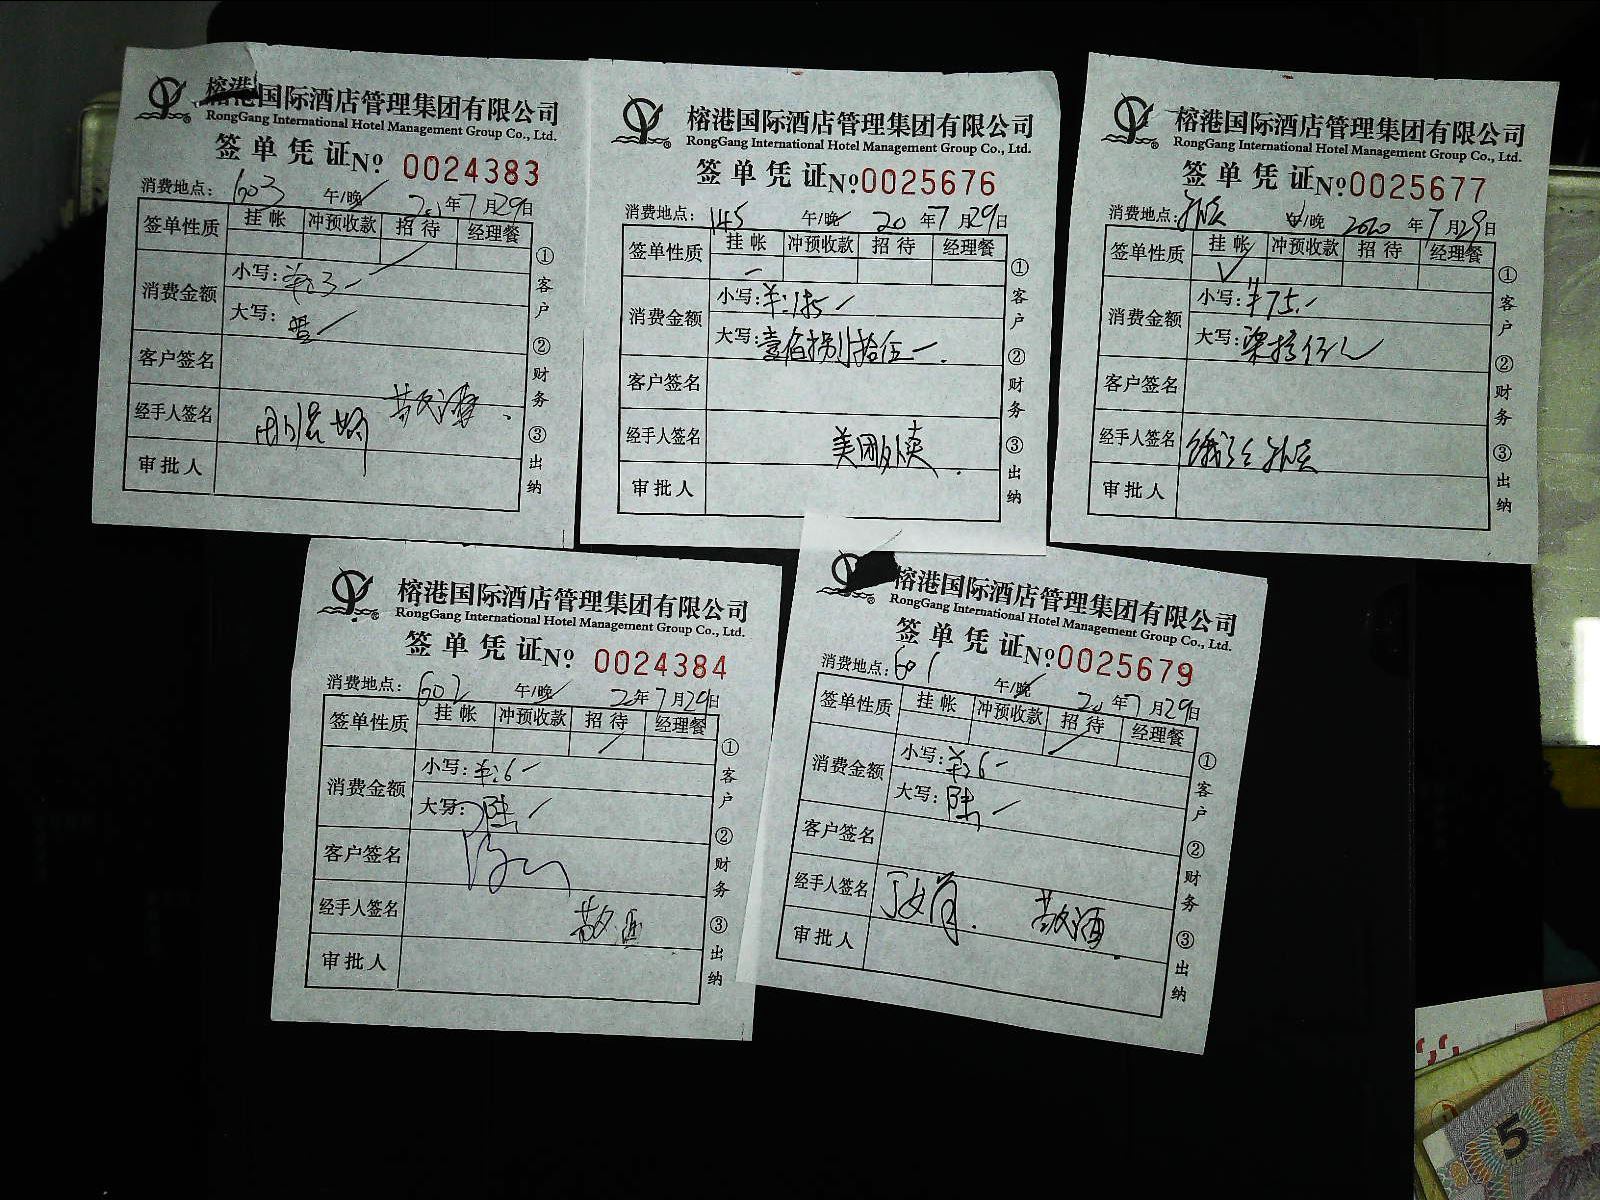 榕港国际酒店管理集团有限公司
RongGang International Hotel Management Group Co., Ltd.
签单凭证 No 0024383
消费地点: 603 午/晚 20年7月29日
签单性质 挂帐 冲预收款 招待 经理餐
消费金额 小写: 3
大写:
客户签名
经手人签名 敬酒
审批人
①客户 ②财务 ③出纳
榕港国际酒店管理集团有限公司
RongGang International Hotel Management Group Co., Ltd.
签单凭证 No 0025676
消费地点: 145 午/晚 20年7月29日
签单性质 挂帐 冲预收款 招待 经理餐
消费金额 小写:
大写: 壹佰捌拾伍
客户签名
经手人签名 美团外卖
审批人
①客户 ②财务 ③出纳
榕港国际酒店管理集团有限公司
RongGang International Hotel Management Group Co., Ltd.
签单凭证 No 0025677
消费地点: 午/晚 2020年7月29日
签单性质 挂帐 冲预收款 招待 经理餐
消费金额 小写: ¥75
大写: 柒拾伍
客户签名
经手人签名
审批人
①客户 ②财务 ③出纳
榕港国际酒店管理集团有限公司
RongGang International Hotel Management Group Co., Ltd.
签单凭证 No 0024384
消费地点: 602 午/晚 2年7月29日
签单性质 挂帐 冲预收款 招待 经理餐
消费金额 小写: 6
大写: 陆
客户签名
经手人签名 敬酒
审批人
①客户 ②财务 ③出纳
榕港国际酒店管理集团有限公司
RongGang International Hotel Management Group Co., Ltd.
签单凭证 No 0025679
消费地点: 601 午/晚 20年7月29日
签单性质 挂帐 冲预收款 招待 经理餐
消费金额 小写: 6
大写: 陆
客户签名
经手人签名 敬酒
审批人
①客户 ②财务 ③出纳
5